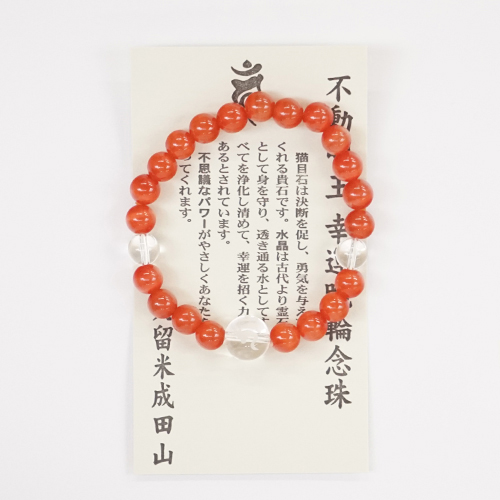 不動 王 幸運 輪念珠
猫目石は決断を促し、勇気を与え
くれる貴石です。水晶は古代より霊石
として身を守り、透き通る水として
べてを浄化し清めて、幸運を招く力
あるとされています。
不思議なパワーがやさしくあなた
ってくれます。
留米成田山